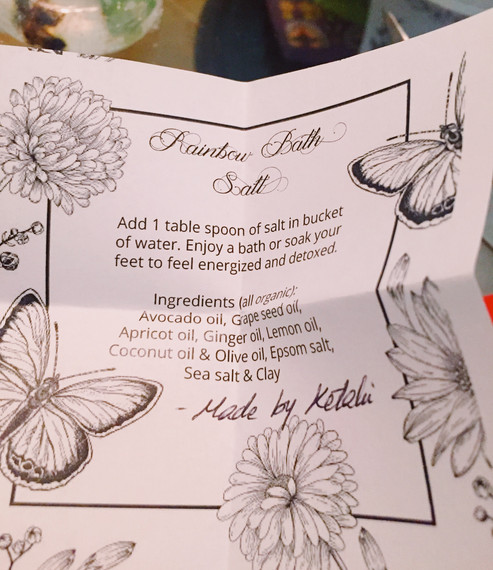 Rainbow Bath
Salt
Add 1 table spoon of salt in bucket
of water. Enjoy a bath or soak your
feet to feel energized and detoxed.
Ingredients (all organic):
Avocado oil, Grape seed oil,
Apricot oil, Ginger oil, Lemon oil,
Coconut oil & Olive oil, Epsom salt,
Sea salt & Clay
- Made by